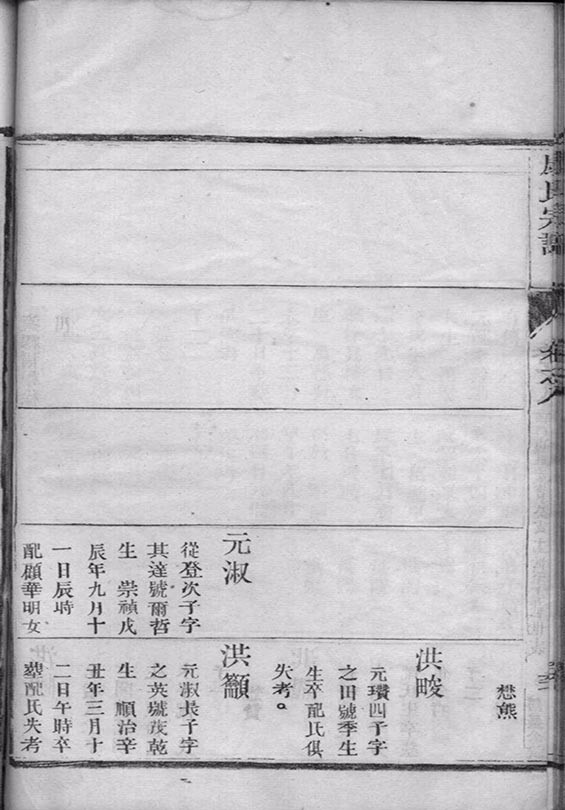 氏宗譜
卷之八
懋熊
洪畯
元瓚四子字
之田號季生
生卒配氏俱
失考。
元淑
從登次子字
其達號爾哲
生 崇禎戊
辰年九月十
一日辰時
配顧華明女
洪籲
元淑長子字
之英號茂乾
生 順治辛
丑年三月十
二日午時卒
葬配氏失考